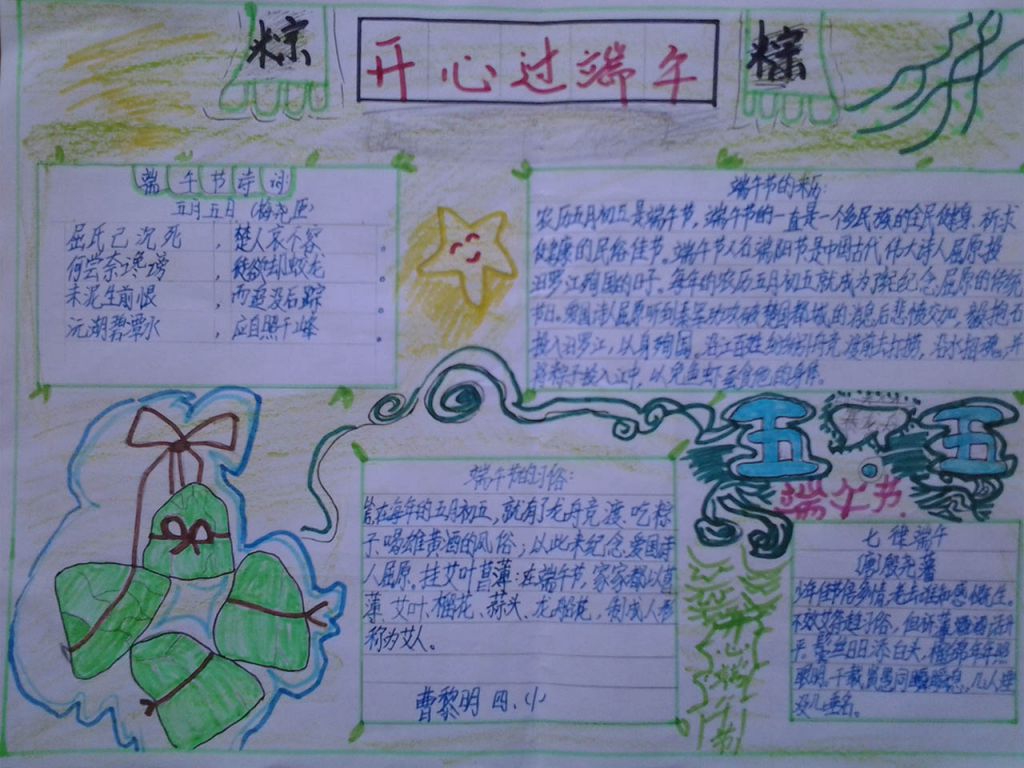 粽
开心过端午
粽
端午节诗词:
五月五日 (梅尧臣)
屈氏已沉死,楚人哀不容。
何尝奈谗谤,徒欲却蛟龙。
未泯生前恨,而追没后踪。
沅湖碧潭水,应自照千峰。
端午节的来历:
农历五月初五是端午节,端午节的一直是一个多民族的全民健身、祈求
健康的民俗佳节。端午节又名端阳节是中国古代伟大诗人屈原投
汨罗江殉国的日子,每年的农历五月初五就成为了纪念屈原的传统
节日。爱国诗人屈原听到秦军攻破楚国都城的消息后悲愤交加,毅抱石
投入汨罗江,以身殉国。沿江百姓纷纷引舟竞渡前去打捞,沿水招魂,并
将粽子投入江中,以免鱼虾蚕食他的身体。
五 五
端午节
端午节的习俗:
在每年的五月初五,就有了龙舟竞渡、吃粽
子、喝雄黄酒的风俗;以此来纪念爱国诗
人屈原。挂艾叶菖蒲:在端午节,家家都以菖
蒲、艾叶、榴花、蒜头、龙船花,制成人形
称为艾人。
曹黎明 四、小
七律端午
殷尧藩
少年佳节倍多情,老去谁知感慨生。
不效艾符趋习俗,但祈蒲酒话升
平。鬓丝日日添白头,榴锦年年照
眼明,千载贤愚同瞬息,几人埋
没几垂名。